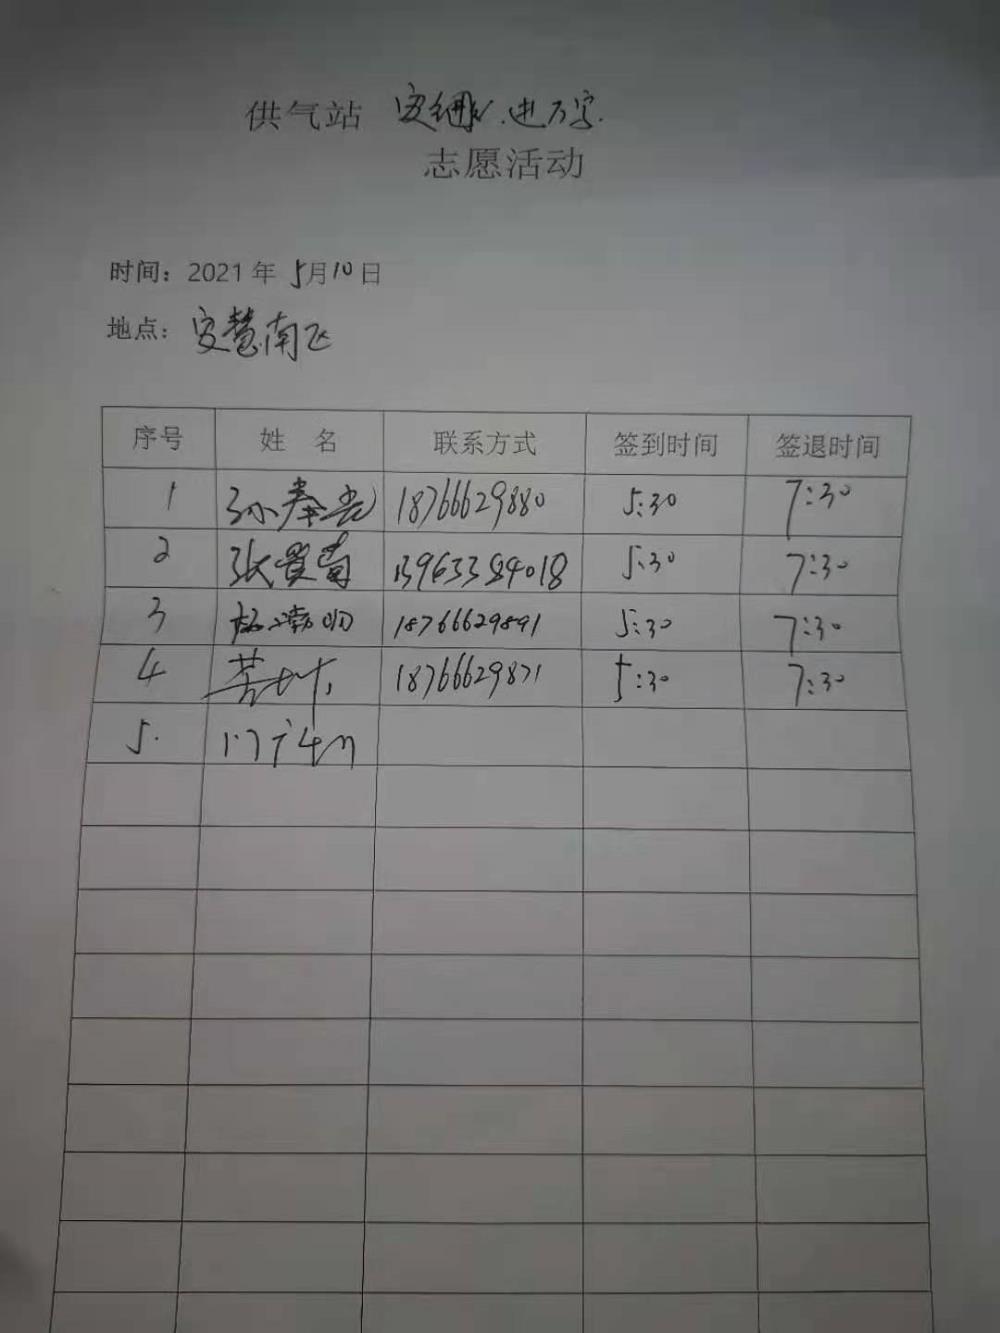 供气站 安
志愿活动
时间：2021年5月10日
地点：安慧南区
序号 姓 名 联系方式 签到时间 签退时间
1 孙奉 18766629880 5:30 7:30
2 张贵 13963354018 5:30 7:30
3 杨 18766629891 5:30 7:30
4 苦 18766629871 5:30 7:30
5.